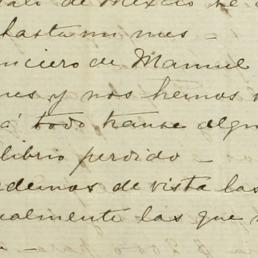 de Mexico he
hasta mi mes -
enciero de Manuel
nes y nos hemos
á todo trance algun
librio perdido -
rdemos de vista las
ualmente las que